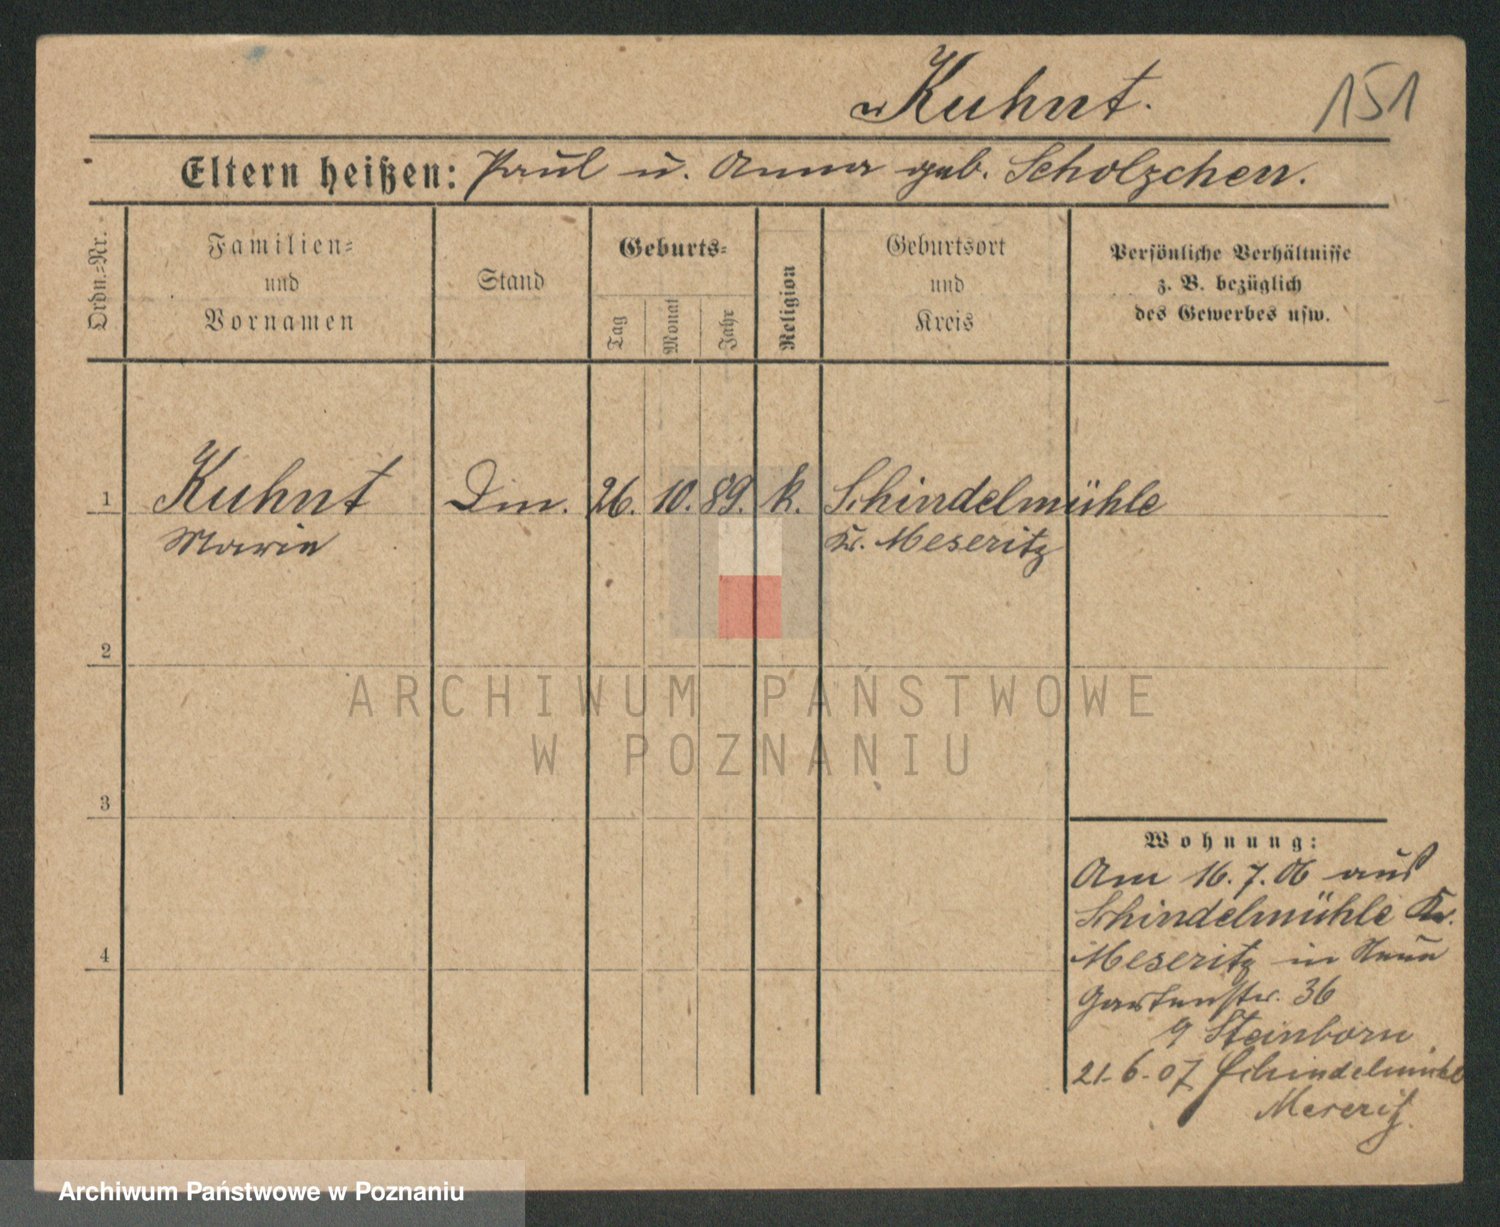 Kuhnt.
151
Eltern heißen: Paul u. Anna geb. Scholzchen.
Ordn.=Nr.
Familien=
und
Vornamen
Stand
Geburts=
Tag
Monat
Jahr
Religion
Geburtsort
und
Kreis
Persönliche Verhältnisse
z. B. bezüglich
des Gewerbes usw.
1
Kuhnt Dm. 26. 10. 89. k. Schindelmühle
Marie Kr. Meseritz
2
ARCHIWUM PAŃSTWOWE
W POZNANIU
3
Wohnung:
Am 16.7.06 aus
Schindelmühle Kr.
Meseritz in Neue
Gartenstr. 36
Steinborn
21.6.07 Schindelmühle
Meseritz
4
Archiwum Państwowe w Poznaniu